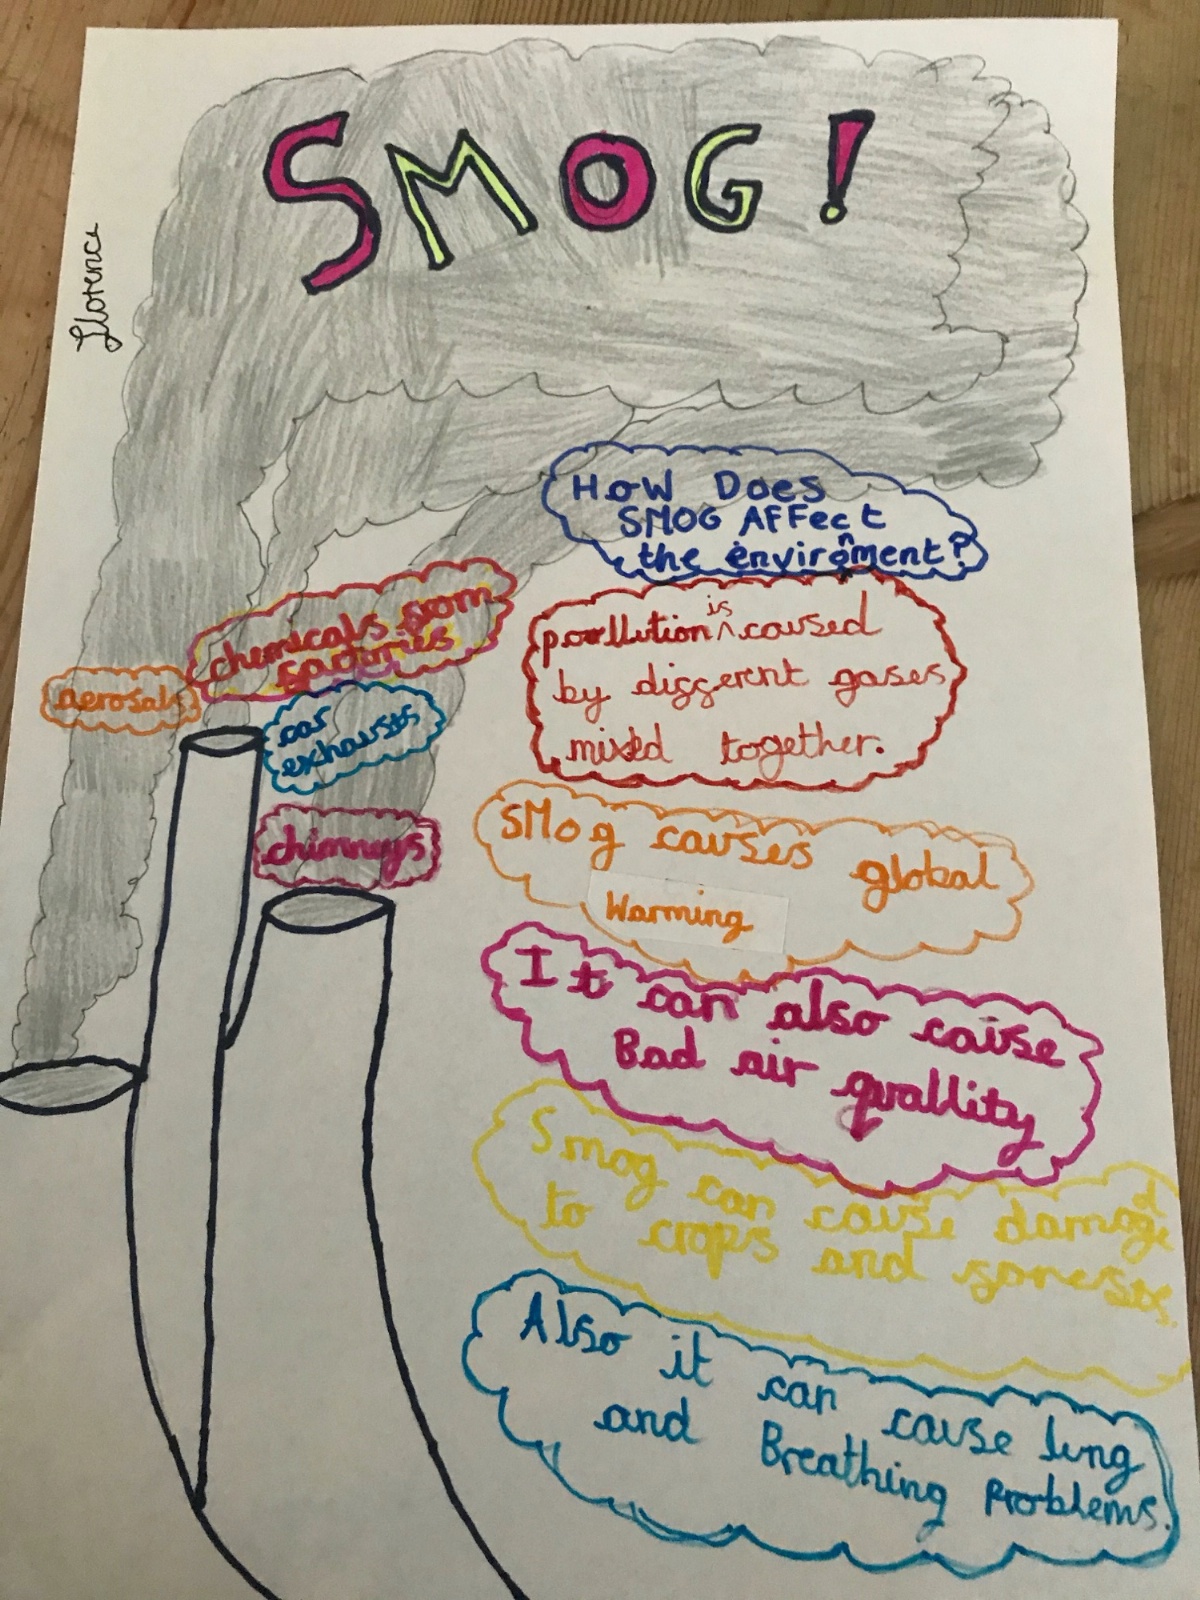 SMOG!
Florence
How Does
SMOG AFFect
the envirọnment?
chemicals from
factories
aerosals
car
exhausts
chimneys
poollution is caused
by different gases
mixed together.
SMog causes global
Warming
It can also cause
Bad air quallity
Smog can cause damage
to crops and forests.
Also it can cause lung
and Breathing Problems.